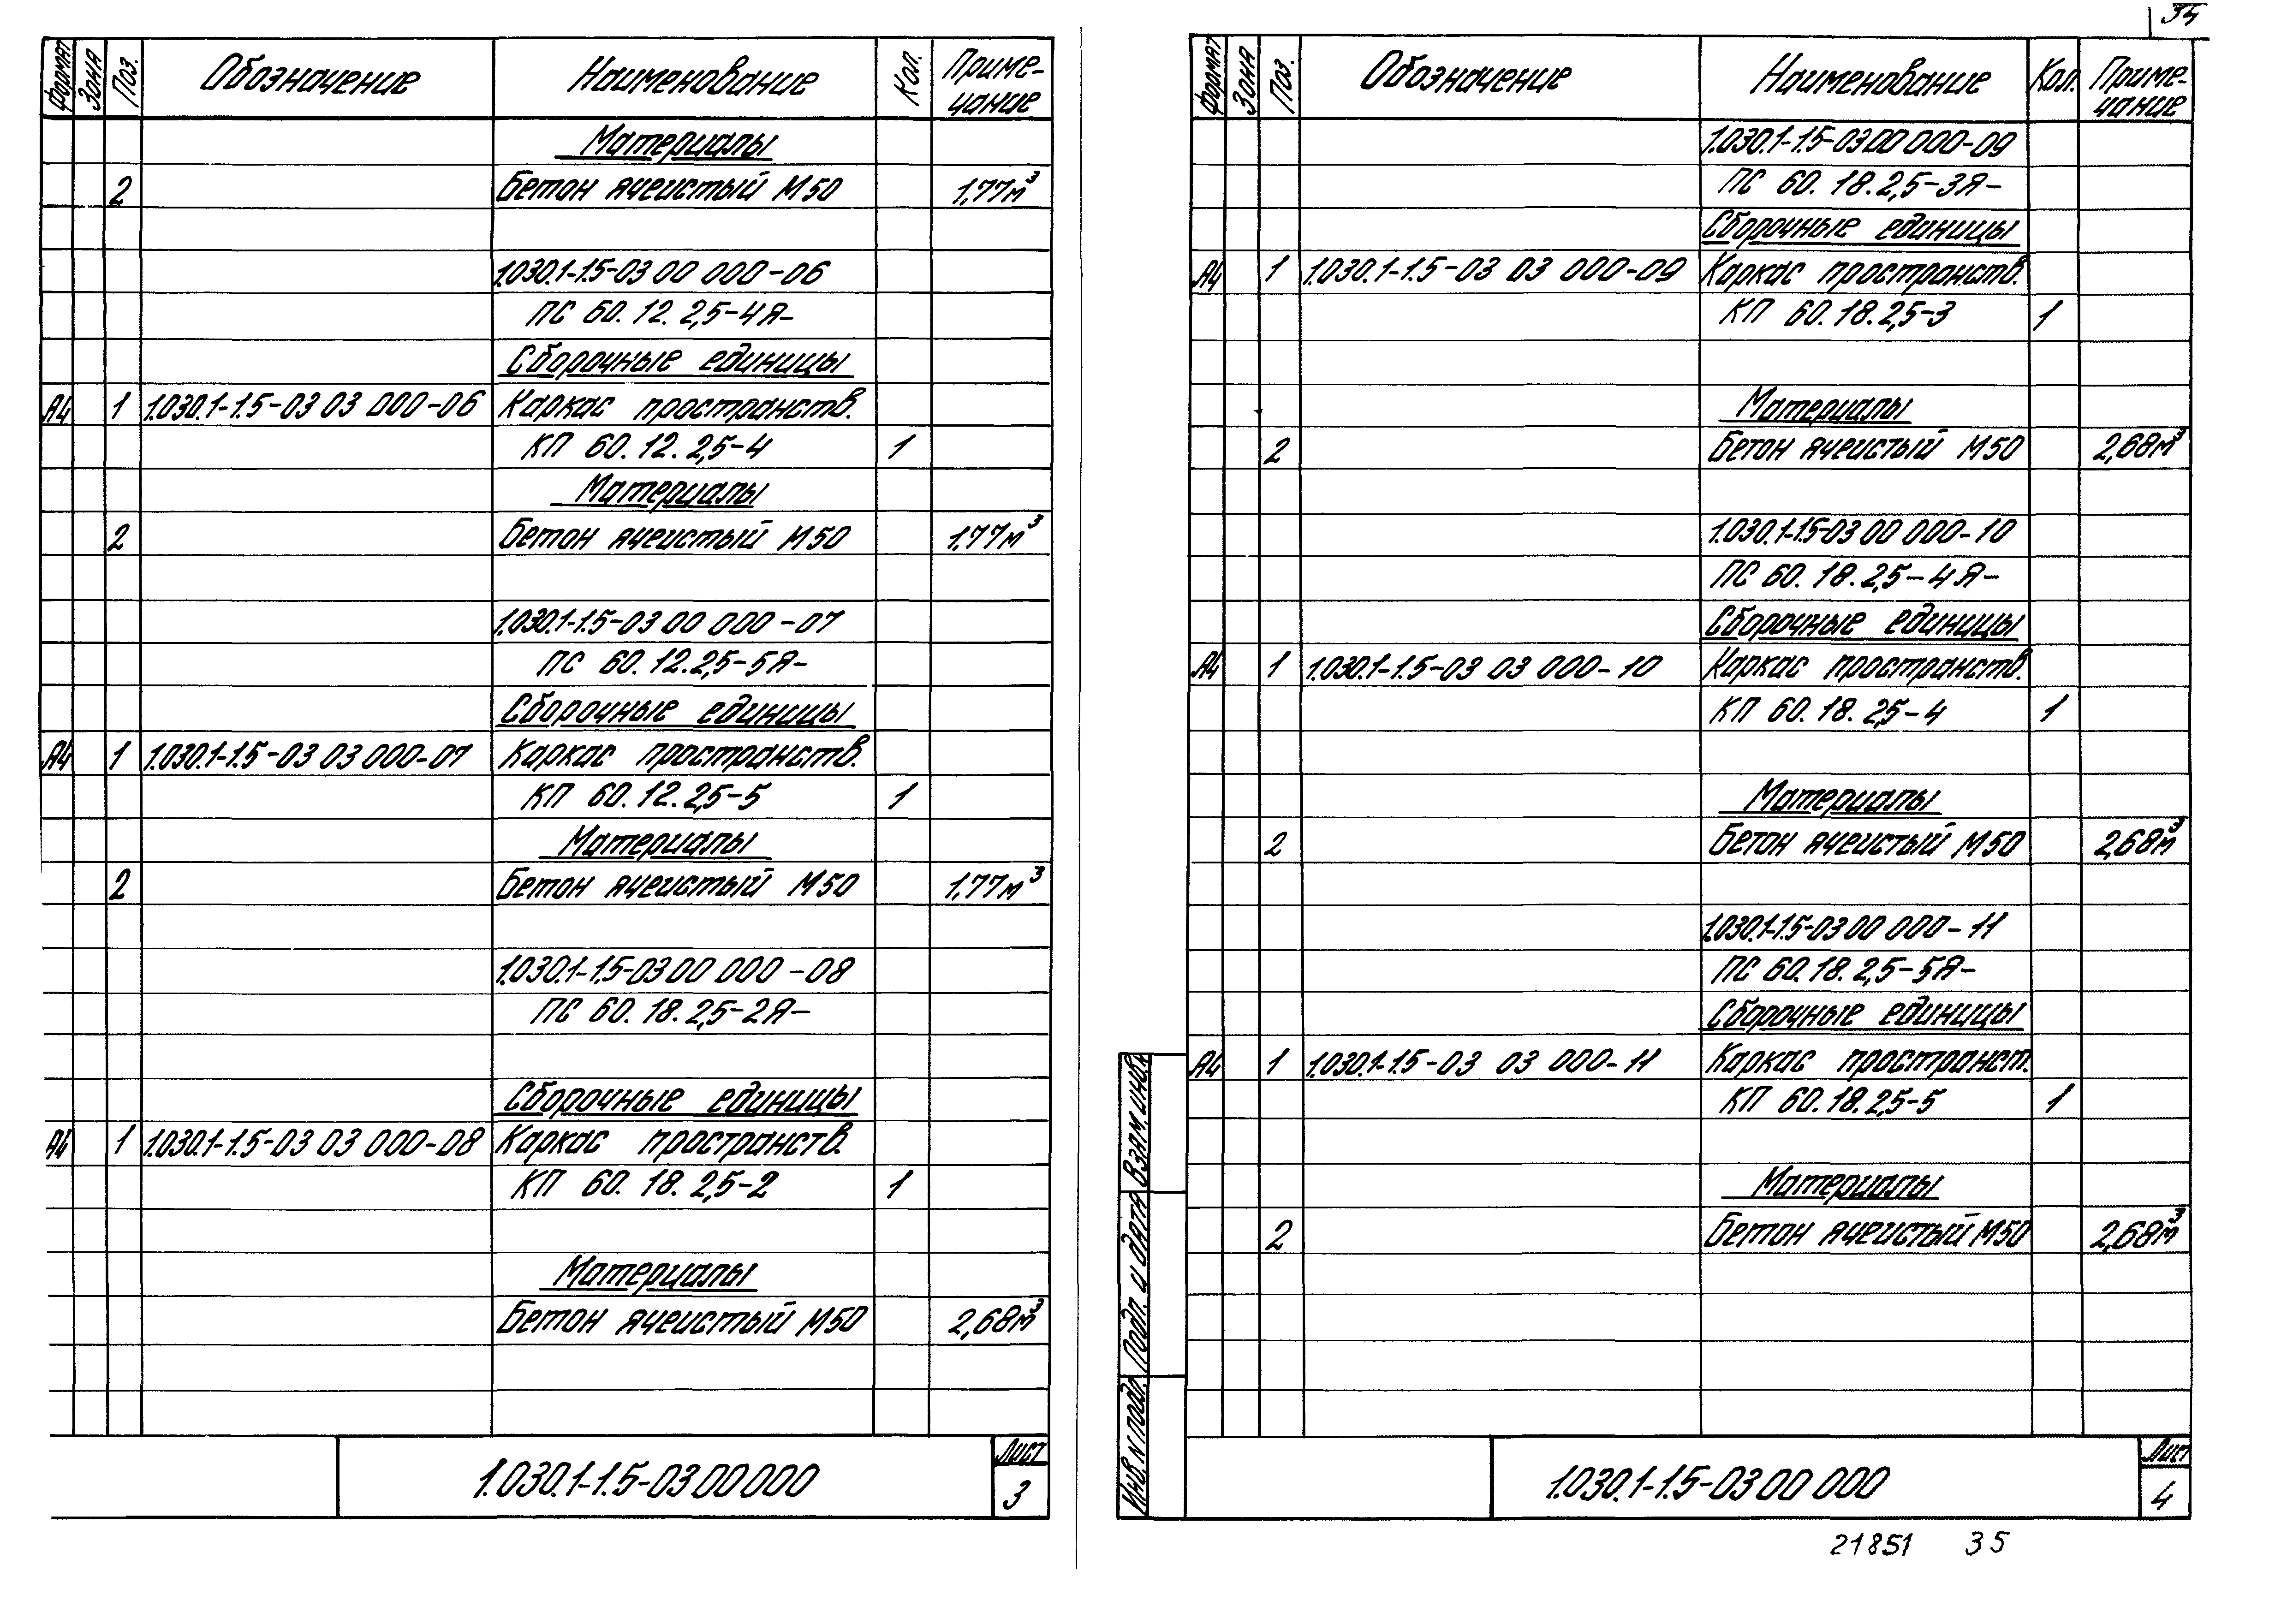 34
Формат Зона Поз. Обозначение Наименование Кол. Приме-
чание
Материалы
2 Бетон ячеистый М50 1,77м³
1.030.1-1.5-03 00 000-06
ПС 60.12.2,5-4Я-
Сборочные единицы
А4 1 1.030.1-1.5-03 03 000-06 Каркас пространств.
КП 60.12.2,5-4 1
Материалы
2 Бетон ячеистый М50 1,77м³
1.030.1-1.5-03 00 000-07
ПС 60.12.2,5-5Я-
Сборочные единицы
А4 1 1.030.1-1.5-03 03 000-07 Каркас пространств.
КП 60.12.2,5-5 1
Материалы
2 Бетон ячеистый М50 1,77м³
1.030.1-1.5-03 00 000-08
ПС 60.18.2,5-2Я-
Сборочные единицы
А4 1 1.030.1-1.5-03 03 000-08 Каркас пространств.
КП 60.18.2,5-2 1
Материалы
Бетон ячеистый М50 2,68м³
1.030.1-1.5-03 00 000
Лист
3
Формат Зона Поз. Обозначение Наименование Кол. Приме-
чание
1.030.1-1.5-03 00 000-09
ПС 60.18.2,5-3Я-
Сборочные единицы
А4 1 1.030.1-1.5-03 03 000-09 Каркас пространств.
КП 60.18.2,5-3 1
Материалы
2 Бетон ячеистый М50 2,68м³
1.030.1-1.5-03 00 000-10
ПС 60.18.2,5-4Я-
Сборочные единицы
А4 1 1.030.1-1.5-03 03 000-10 Каркас пространств.
КП 60.18.2,5-4 1
Материалы
2 Бетон ячеистый М50 2,68м³
1.030.1-1.5-03 00 000-11
ПС 60.18.2,5-5Я-
Сборочные единицы
А4 1 1.030.1-1.5-03 03 000-11 Каркас пространст.
КП 60.18.2,5-5 1
Материалы
2 Бетон ячеистый М50 2,68м³
Взам. инв.
Подп. и дата
Инв N подл.
1.030.1-1.5-03 00 000
Лист
4
21851 35